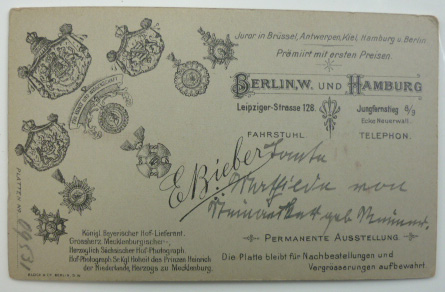 Juror in Brüssel, Antwerpen, Kiel, Hamburg u. Berlin.
Prämiirt mit ersten Preisen.
BERLIN, W. UND HAMBURG
Leipziger-Strasse 128.
Jungfernstieg 8/9
Ecke Neuerwall.
FAHRSTUHL.
TELEPHON.
E. Bieber
Tante
Mathilde von
geb.
Königl. Bayerischer Hof-Lieferant.
Grossherz. Mecklenburgischer-,
Herzoglich Sächsischer-Hof-Photograph.
Hof-Photograph Sr. Kgl. Hoheit des Prinzen Heinrich
der Niederlande, Herzogs zu Mecklenburg.
PERMANENTE AUSSTELLUNG
Die Platte bleibt für Nachbestellungen und
Vergrösserungen aufbewahrt.
PLATTEN NR.